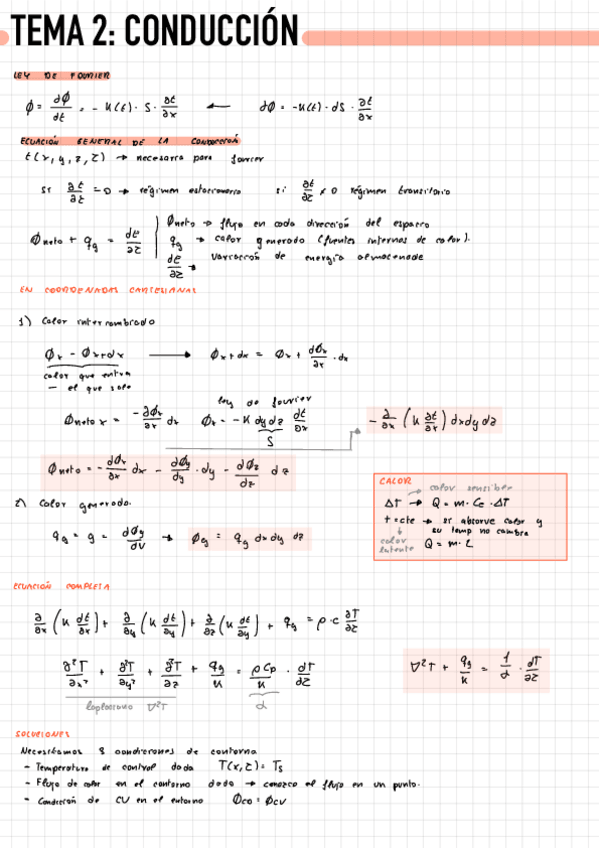 TEMA 2: CONDUCCIÓN
LEY DE FOURIER
ϕ = dϕ/dt = - K(t) · S · ∂t/∂x ← dϕ = -K(t) · dS · ∂t/∂x
ECUACIÓN GENERAL DE LA CONDUCCIÓN
t(x, y, z, τ) → necesaria para fourier
si ∂t/∂τ = 0 → régimen estacionario si ∂t/∂τ ≠ 0 régimen transitorio
ϕneto + qg = dt/∂τ
ϕneto → flujo en cada dirección del espacio
qg → calor generado (fuentes internas de calor).
dt/∂τ → variación de energía almacenada
EN COORDENADAS CARTESIANAS
1) Calor intercambiado
ϕx - ϕx+dx → ϕx+dx = ϕx + dϕx/∂x · dx
calor que entra
- el que sale
ley de fourier
ϕneto x = -∂ϕx/∂x dx ϕx = -K dy dz dt/∂x
S
-∂/∂x (K ∂t/∂x) dx dy dz
ϕneto = - dϕx/dx dx - dϕy/dy · dy - dϕz/dz dz
2) Calor generado.
qg = g = dϕg/dV → ϕg = qg dx dy dz
CALOR
calor sensible
ΔT → Q = m · Ce · ΔT
t = cte → si absorve calor y
su temp no cambia
calor latente Q = m · L
ECUACIÓN COMPLETA
∂/∂x (K dt/∂x) + ∂/∂y (K dt/∂y) + ∂/∂z (K dt/∂y) + qg = ρ · c ∂T/∂τ
∂²T/∂x² + ∂²T/∂y² + ∂²T/∂z + qg/K = ρCp/K · dT/dτ
laplaciano ∇²T
α
∇²T + qg/K = 1/α · dT/∂τ
SOLUCIONES
Necesitamos 8 condiciones de contorno
- Temperatura de control dada T(x, τ) = Ts
- Flujo de calor en el contorno dado → conozco el flujo en un punto.
- Condición de CV en el entorno ϕco = ϕcv